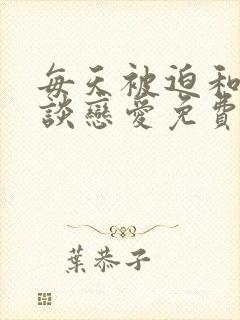 每天被迫和
談戀愛免費
葉恭子